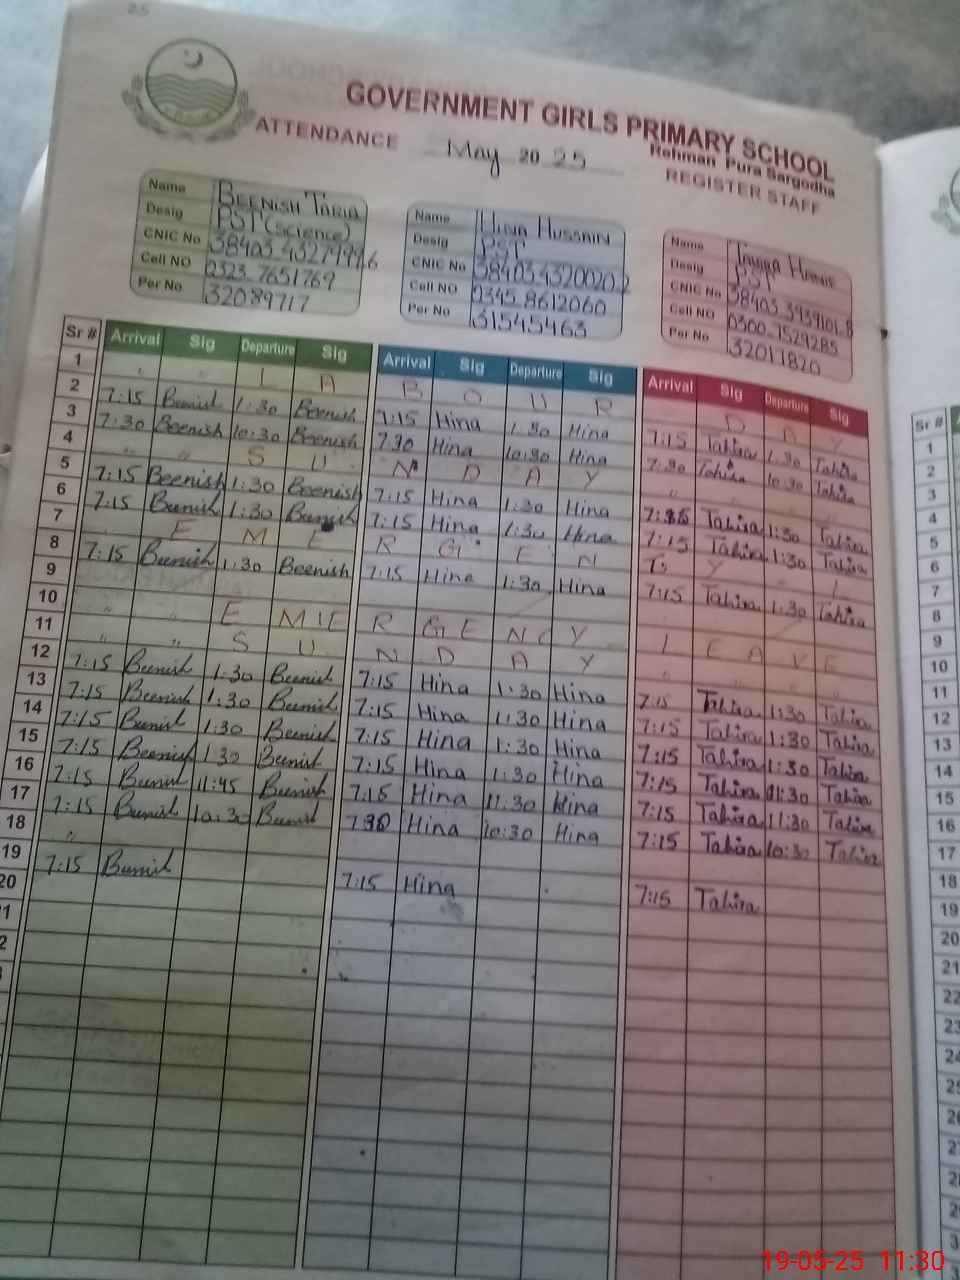 25
GOVERNMENT GIRLS PRIMARY SCHOOL
Rehman Pura Sargodha
ATTENDANCE May 2025 REGISTER STAFF
Name BEENISH TARIQ
Desig PST (Science)
CNIC No
Cell NO 0323-7651769
Per No 32089717
Name HINA HUSSAIN
Desig PST
CNIC No 38403-43200202
Cell NO 0345-8612060
Per No 31545463
Name
Desig PST
CNIC No
Cell NO 0300-7529285
Per No 32011820
Sr # Arrival Sig Departure Sig Arrival Sig Departure Sig Arrival Sig Departure Sig Sr #
1 " " L A B O U R D A Y 1
2 7:15 Beenish 1:30 Beenish 7:15 Hina 1:30 Hina 7:15 Tahira 1:30 Tahira 2
3 7:30 Beenish 10:30 Beenish 7:30 Hina 10:30 Hina 7:30 Tahira 10:30 Tahira 3
4 " " S U N D A Y " " 4
5 7:15 Beenish 1:30 Beenish 7:15 Hina 1:30 Hina Tahira 1:30 Tahira 5
6 7:15 Beenish 1:30 Beenish 7:15 Hina 1:30 Hina 7:15 Tahira 1:30 Tahira 6
7 E M E R G E N Y L 7
8 7:15 Beenish 1:30 Beenish 7:15 Hina 1:30 Hina 7:15 Tahira 1:30 Tahira 8
9 9
10 " " E M E R G E N C Y L E A V E 10
11 " " S U N D A Y " " 11
12 7:15 Beenish 1:30 Beenish 7:15 Hina 1:30 Hina 7:15 Tahira 1:30 Tahira 12
13 7:15 Beenish 1:30 Beenish 7:15 Hina 1:30 Hina 7:15 Tahira 1:30 Tahira 13
14 7:15 Beenish 1:30 Beenish 7:15 Hina 1:30 Hina 7:15 Tahira 1:30 Tahira 14
15 7:15 Beenish 1:30 Beenish 7:15 Hina 1:30 Hina 7:15 Tahira 11:30 Tahira 15
16 7:15 Beenish 11:45 Beenish 7:15 Hina 11:30 Hina 7:15 Tahira 11:30 Tahira 16
17 7:15 Beenish 10:30 Beenish 7:30 Hina 10:30 Hina 7:15 Tahira 10:30 Tahira 17
18 " 18
19 7:15 Beenish 7:15 Hina 7:15 Tahira 19
20 20
21
22
23
19-05-25 11:30